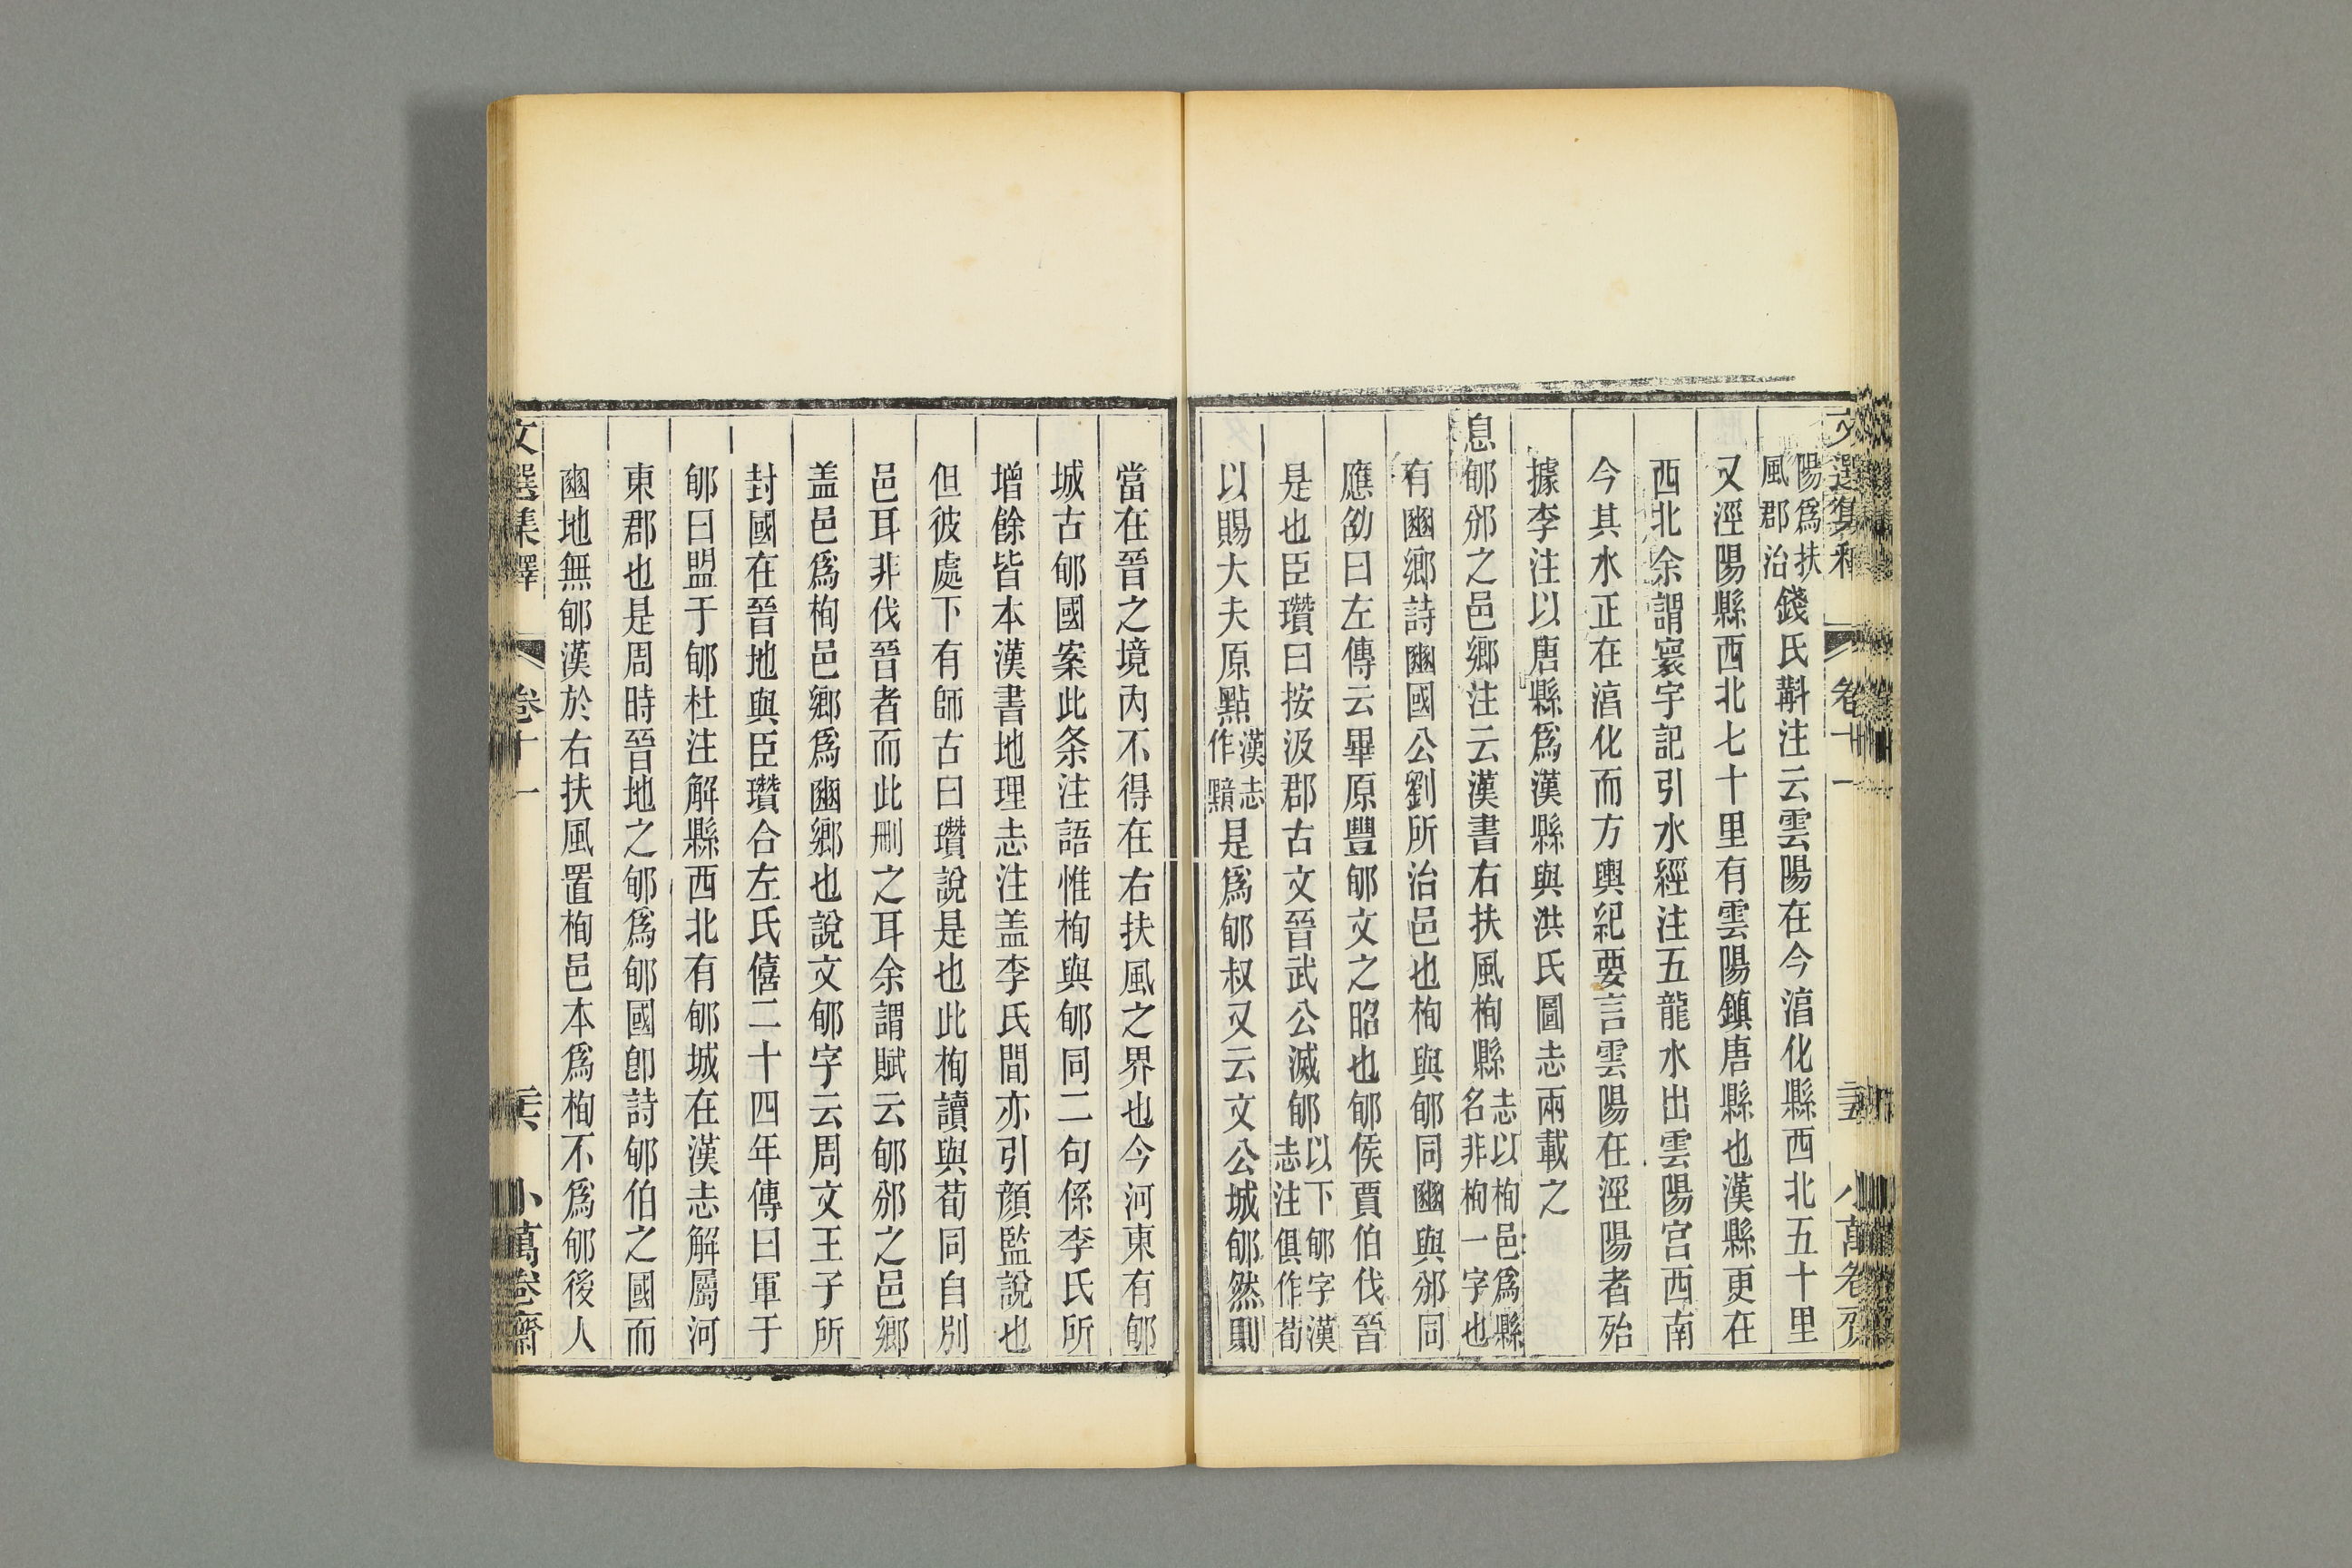 陽爲扶風郡治錢氏斠注云雲陽在今淯化縣西北五十里
又涇陽縣西北七十里有雲陽鎮唐縣也漢縣更在
西北余謂寰宇記引水經注五龍水出雲陽宮西南
今其水正在淯化而方輿紀要言雲陽在涇陽者殆
據李注以唐縣爲漢縣與洪氏圖志兩載之
息郇邠之邑鄉注云漢書右扶風栒縣志以栒邑爲縣名非栒一字也
有豳鄉詩豳國公劉所治邑也栒與郇同豳與邠同
應劭曰左傳云畢原豐郇文之昭也郇侯賈伯伐晉
是也臣瓚曰按汲郡古文晉武公滅郇以下郇字漢志注俱作荀
以賜大夫原點漢志作黯是爲郇叔又云文公城郇然則
當在晉之境內不得在右扶風之界也今河東有郇
城古郇國案此条注語惟栒與郇同二句係李氏所
增餘皆本漢書地理志注盖李氏間亦引顏監說也
但彼處下有師古曰瓚說是也此栒讀與荀同自別
邑耳非伐晉者而此刪之耳余謂賦云郇邠之邑鄉
盖邑爲栒邑鄉爲豳鄉也說文郇字云周文王子所
封國在晉地與臣瓚合左氏僖二十四年傳曰軍于
郇曰盟于郇杜注解縣西北有郇城在漢志解屬河
東郡也是周時晉地之郇爲郇國卽詩郇伯之國而
豳地無郇漢於右扶風置栒邑本爲栒不爲郇後人
文選集釋 卷十一 芸 小萬卷齋